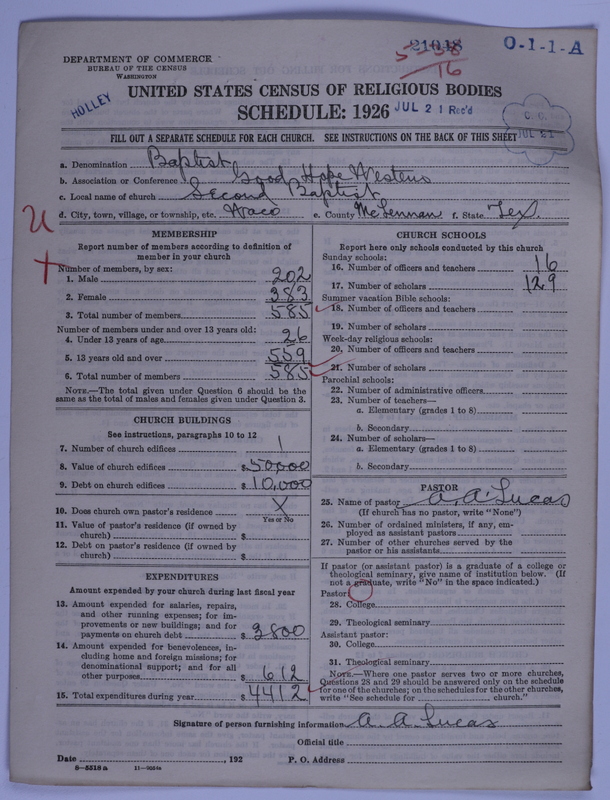 21048
5-38
16
O-1-1-A
DEPARTMENT OF COMMERCE
BUREAU OF THE CENSUS
WASHINGTON
HOLLEY
UNITED STATES CENSUS OF RELIGIOUS BODIES
SCHEDULE: 1926
JUL 21 Rec'd
JUL 21
FILL OUT A SEPARATE SCHEDULE FOR EACH CHURCH. SEE INSTRUCTIONS ON THE BACK OF THIS SHEET
a. Denomination Baptist
b. Association or Conference Good Hope Western
c. Local name of church Second Baptist
d. City, town, village, or township, etc. Waco e. County McLennan f. State Tex.
U
MEMBERSHIP
Report number of members according to definition of
member in your church
Number of members, by sex:
1. Male 202
2. Female 383
3. Total number of members 585
Number of members under and over 13 years old:
4. Under 13 years of age 26
5. 13 years old and over 559
6. Total number of members 585
NOTE.—The total given under Question 6 should be
same as the total of males and females given under Question 3.
CHURCH BUILDINGS
See instructions, paragraphs 10 to 12
7. Number of church edifices 1
8. Value of church edifices $50000
9. Debt on church edifices $10,000
10. Does church own pastor's residence X
Yes or No
11. Value of pastor's residence (if owned by
church) $
12. Debt on pastor's residence (if owned by
church) $
EXPENDITURES
Amount expended by your church during last fiscal year
13. Amount expended for salaries, repairs,
and other running expenses; for im-
provements or new buildings; and for
payments on church debt $3800
14. Amount expended for benevolences, in-
cluding home and foreign missions; for
denominational support; and for all
other purposes $612
15. Total expenditures during year $4412
CHURCH SCHOOLS
Report here only schools conducted by this church
Sunday schools:
16. Number of officers and teachers 16
17. Number of scholars 129
Summer vacation Bible schools:
18. Number of officers and teachers
19. Number of scholars
Week-day religious schools:
20. Number of officers and teachers
21. Number of scholars
Parochial schools:
22. Number of administrative officers
23. Number of teachers—
a. Elementary (grades 1 to 8)
b. Secondary
24. Number of scholars—
a. Elementary (grades 1 to 8)
b. Secondary
PASTOR
25. Name of pastor A. A. Lucas
(If church has no pastor, write "None")
26. Number of ordained ministers, if any, em-
ployed as assistant pastors
27. Number of other churches served by the
pastor or his assistants
If pastor (or assistant pastor) is a graduate of a college or
theological seminary, give name of institution below. (If
not a graduate, write "No" in the space indicated.)
Pastor:
28. College
29. Theological seminary
Assistant pastor:
30. College
31. Theological seminary
NOTE.—Where one pastor serves two or more churches,
Questions 28 and 29 should be answered only on the schedule
for one of the churches; on the schedules for the other churches,
write "See schedule for church."
Signature of person furnishing information A. A. Lucas
Official title
Date , 192 P. O. Address
8-5518a 11-9264a